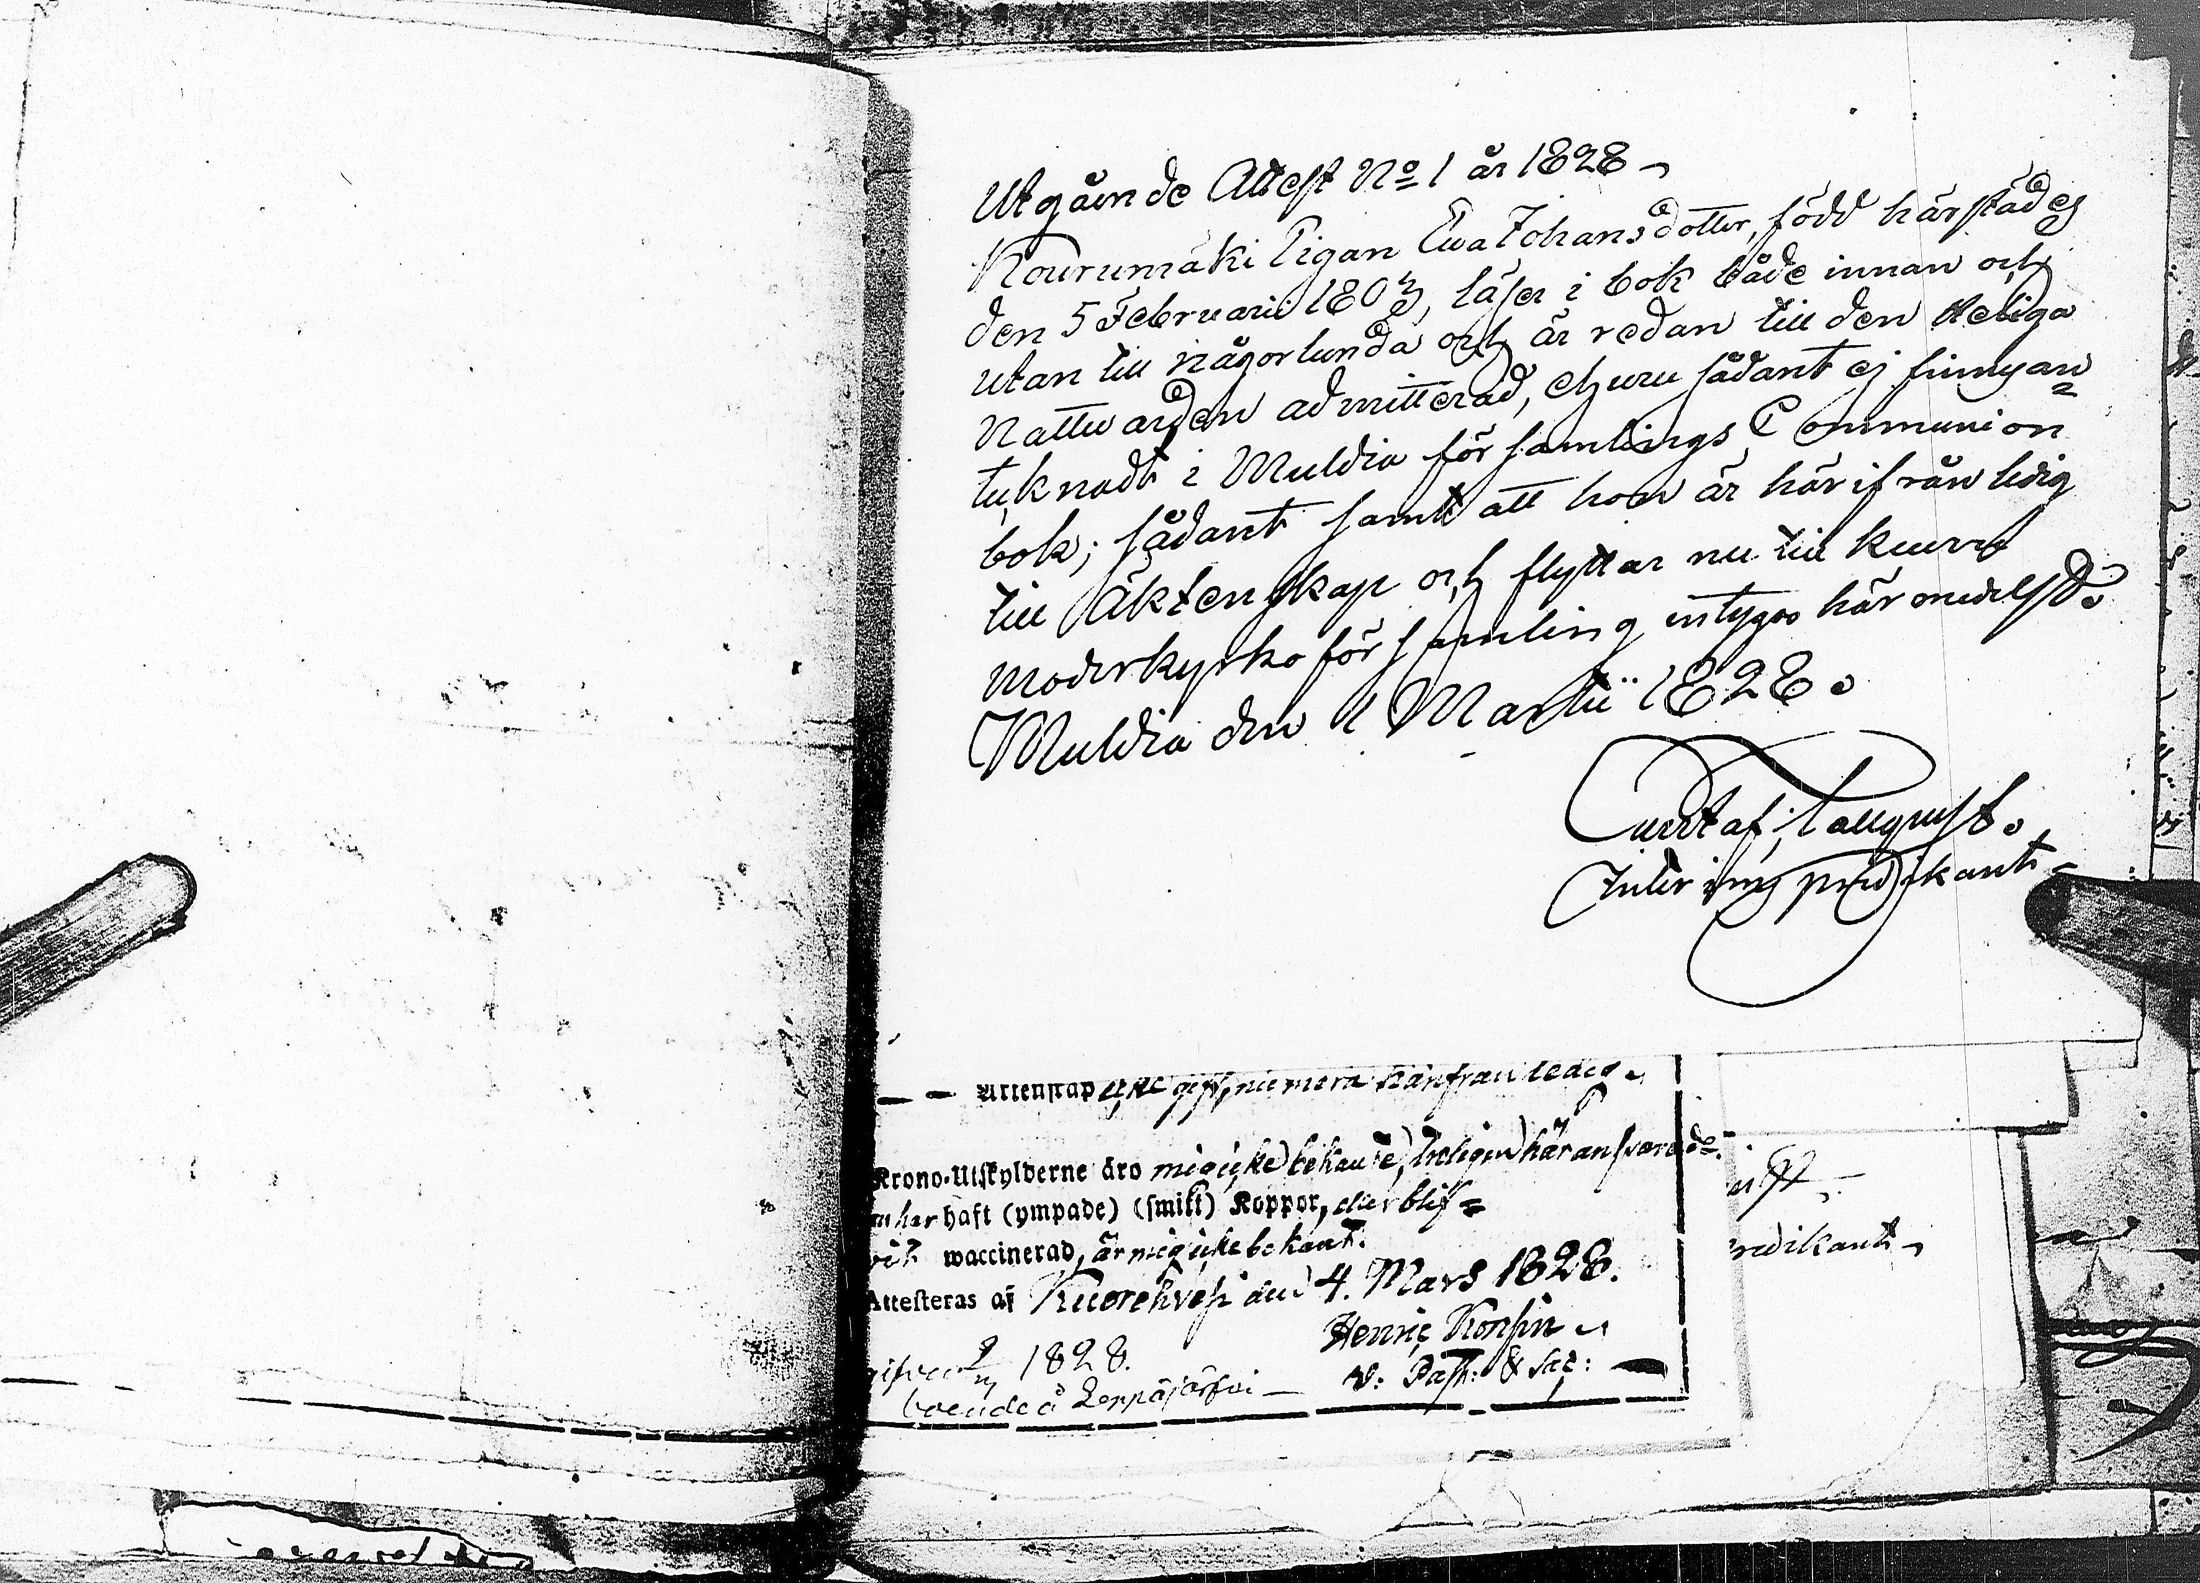 Utgående Attest No 1 år 1828
Kourumäki Pigan Ewa Johansdotter, född härstädes
den 5 Februarii 1803, läser i bok både innan och
utan till någorlunda och är redan till den Heliga
Nattwarden admitterad, ehuru sådant ej finnes an=
tecknadt i Muldia församlings Communion
bok; sådant samt att hon är härifrån ledig
till Äktenskap och flyttar nu till
moderkyrko församling intygas härmedelst.
Muldia den 1 Martii 1828.
Gustaf
Interims predikant
Äktenskap icke gift, nu mera härifrån ledig.
Krono-Utskylderne äro mig icke bekante, troligen här ansvarade.
har haft (ympade) (smitt) Koppor, eller blif=
vit waccinerad, är mig icke bekant.
Attesteras af Kuorehvesi den 4. Mars 1828.
Henric Konsin
v: Past: & Sac:
1828.
boende å Leppäjärfvi
redikant